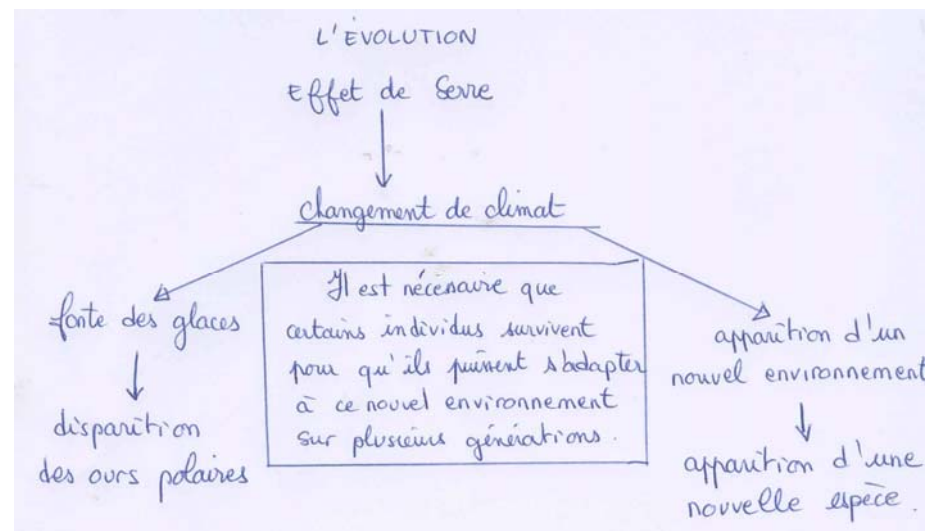 L'ÉVOLUTION
Effet de Serre
changement de climat
fonte des glaces
disparition
des ours polaires
Il est nécessaire que
certains individus survivent
pour qu'ils puissent s'adapter
à ce nouvel environnement
sur plusieurs générations.
apparition d'un
nouvel environnement
apparition d'une
nouvelle espèce.